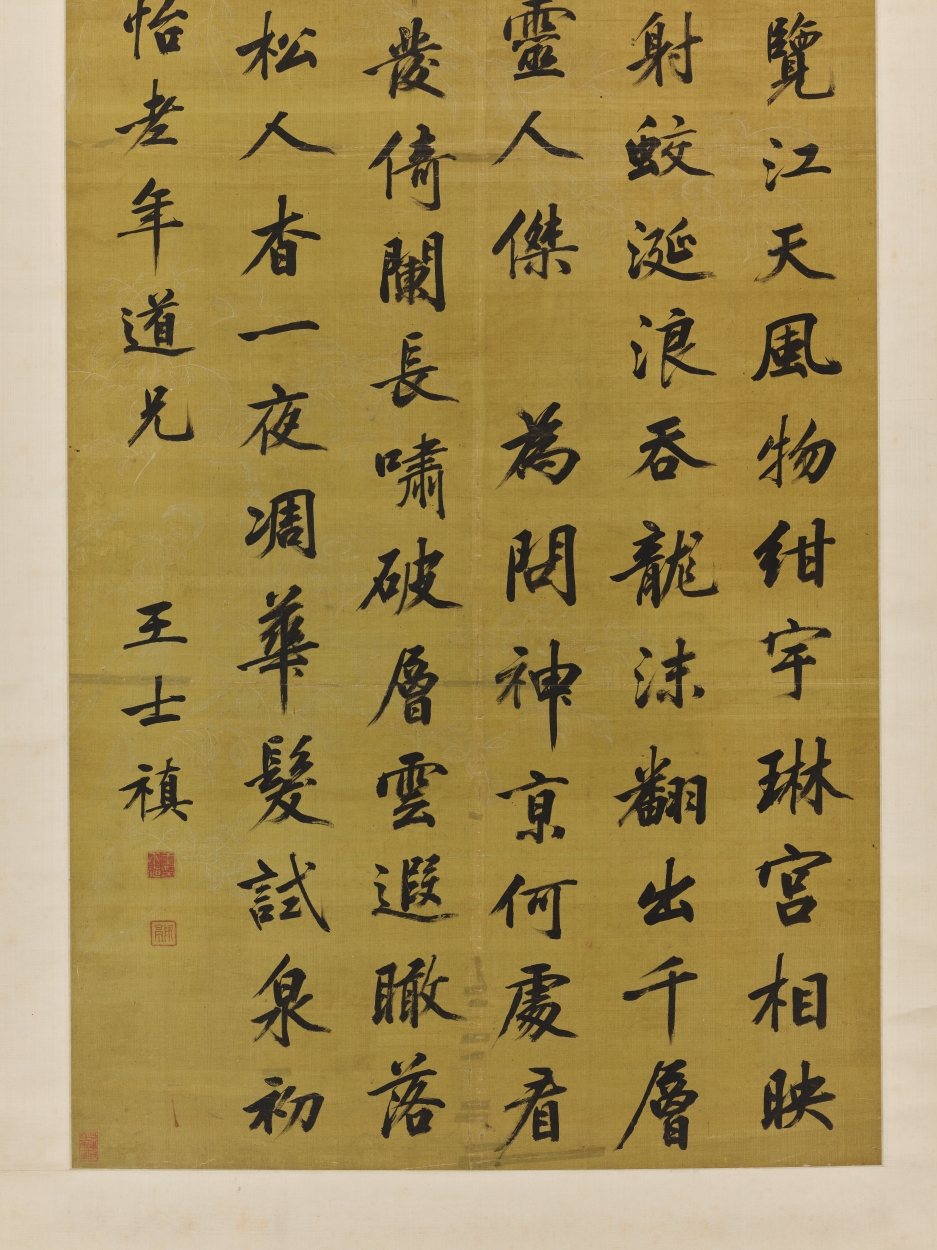 覽江天風物紺宇琳宮相映
射蛟涎浪吞龍沫翻出千層
靈人傑 為問神京何處看
發倚闌長嘯破層雲遐瞰落
松人杳一夜凋華髮試泉初
怡老年道兄 王士禛